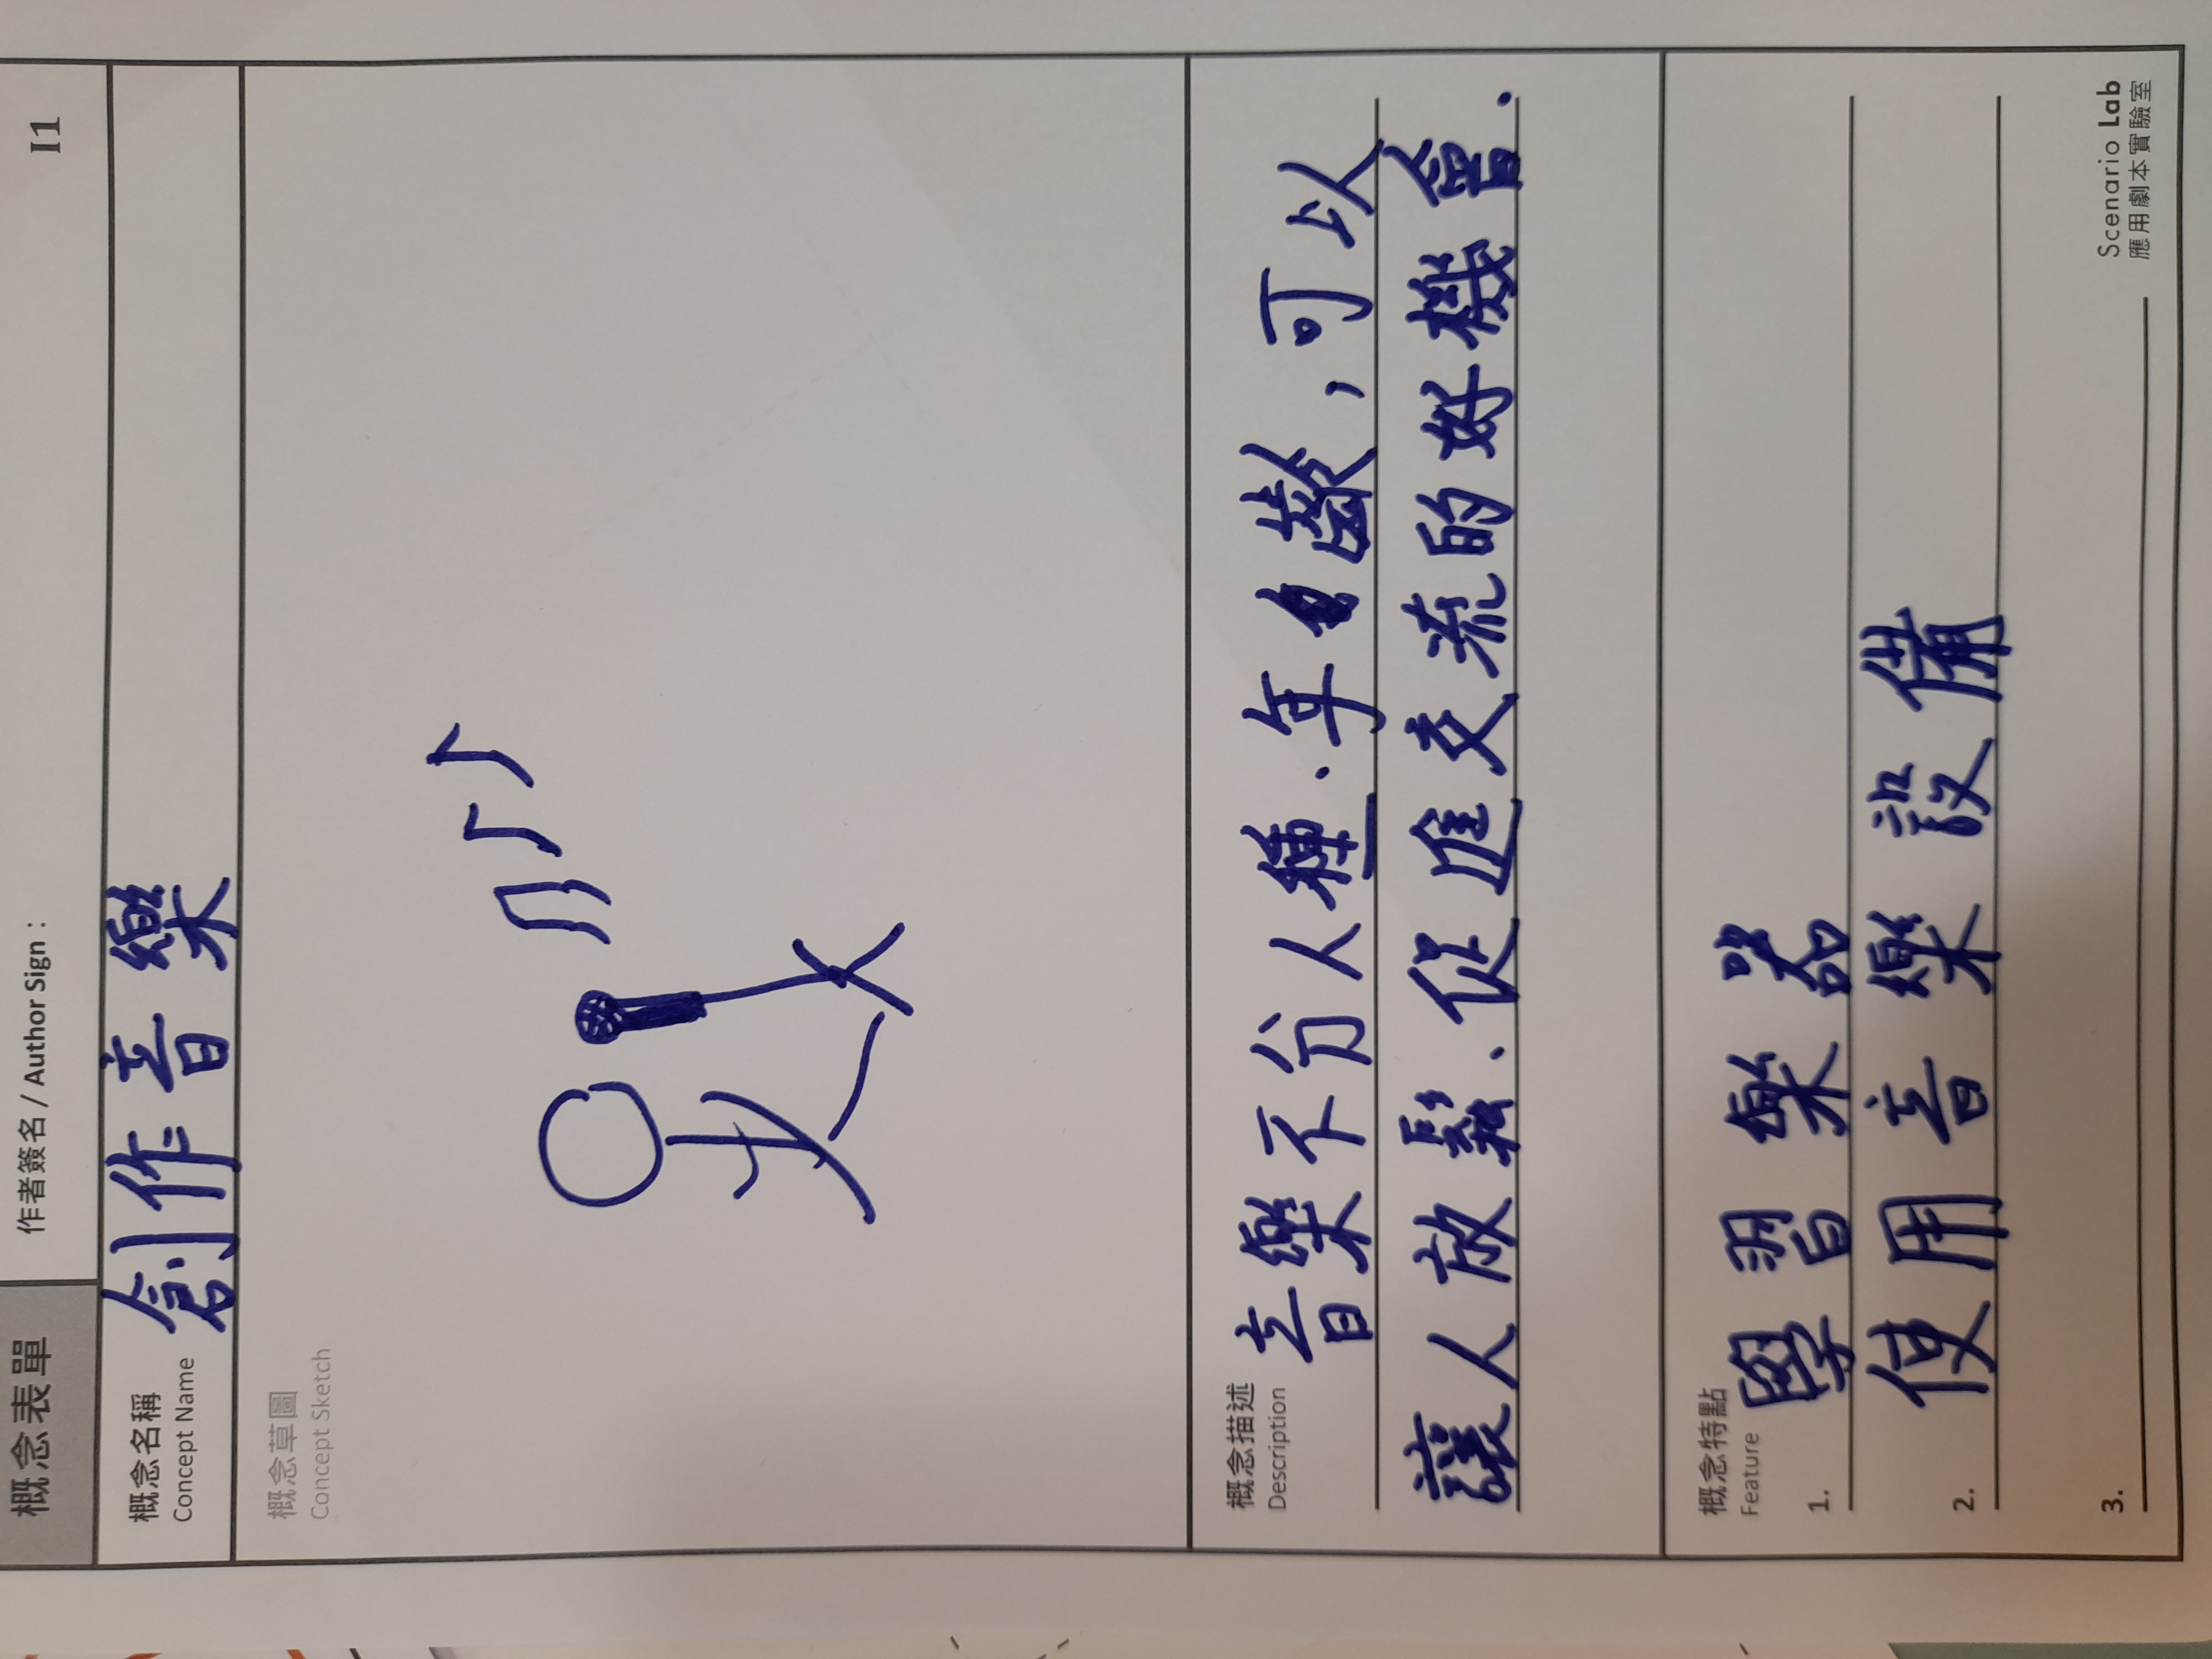 概念表單
作者簽名 / Author Sign：
I1
概念名稱
Concept Name
創作音樂
概念草圖
Concept Sketch
概念描述
Description
音樂不分人種、年齡，可以
讓人放鬆、促進交流的好機會.
概念特點
Feature
1. 學習樂器
2. 使用音樂設備
3.
Scenario Lab
應用劇本實驗室